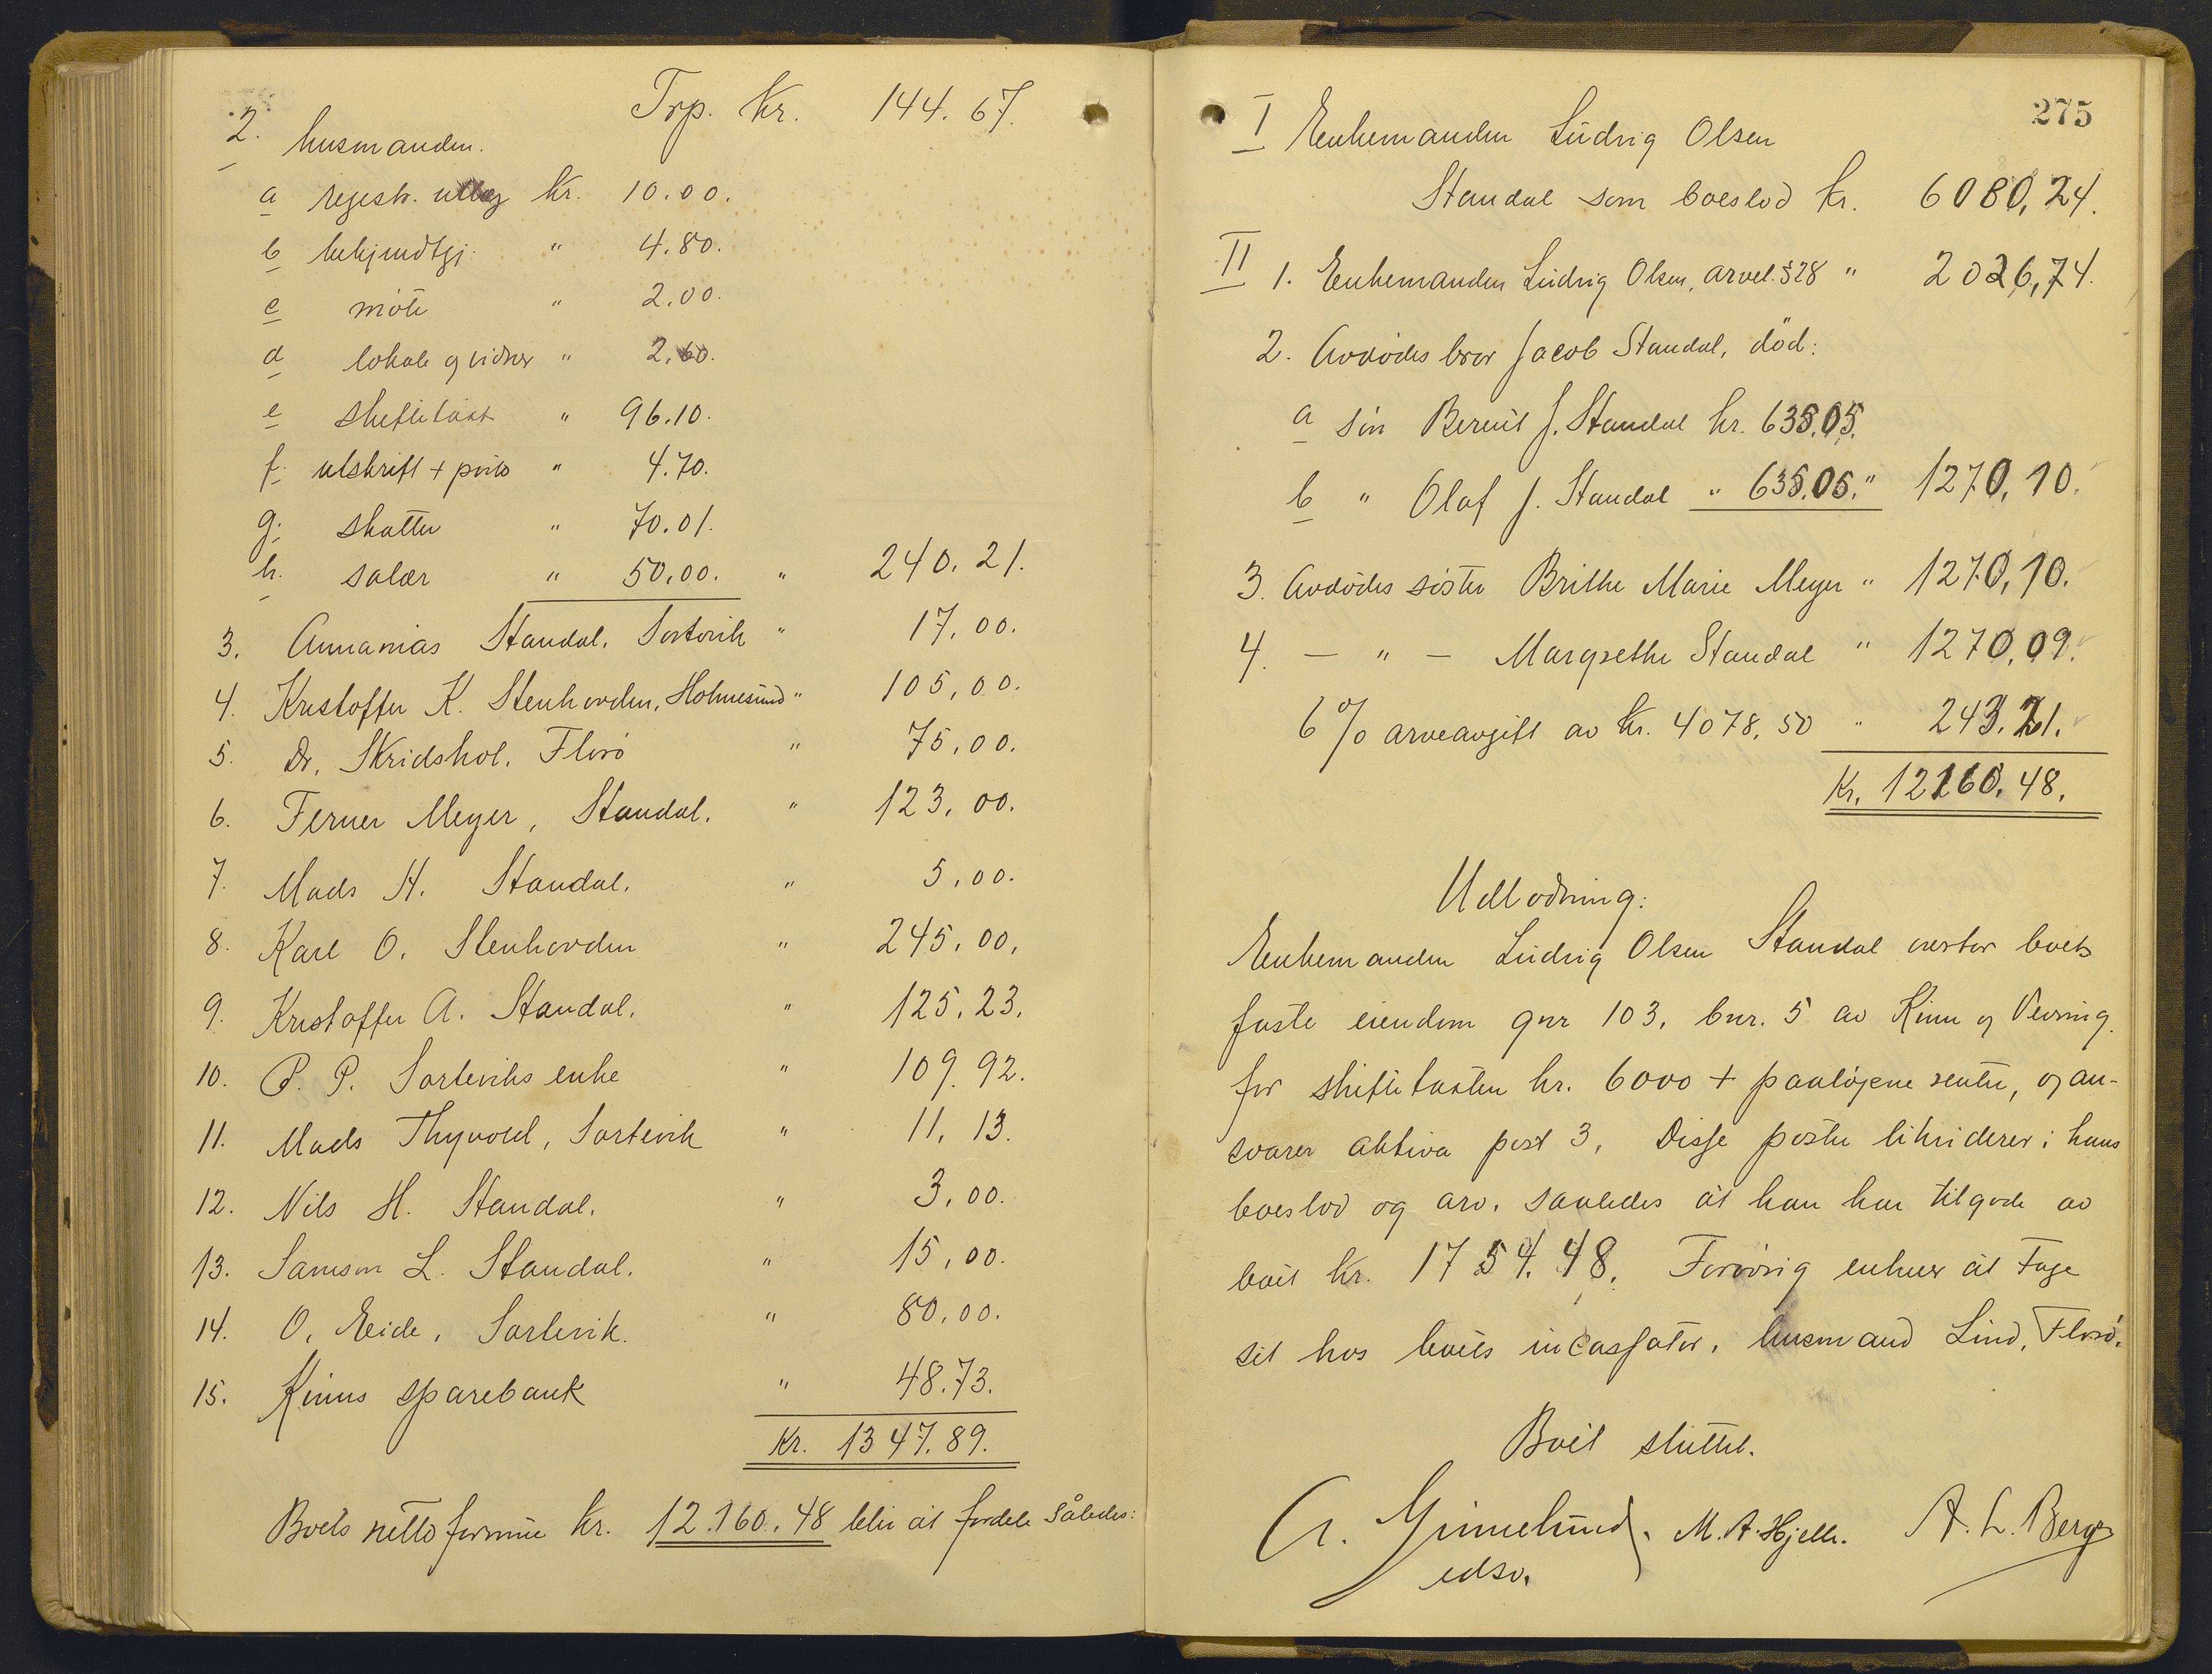 Trp. Kr. 144.67.
2. lensmanden.
a regestr. utlæg Kr. 10.00.
b bekjendtgj. " 4.80.
c møte " 2.00.
d lokale og vidner " 2.60.
e skiftetakst " 96.10.
f. utskrift + porto " 4.70.
g. skatter " 70.01.
h. salær " 50.00. " 240.21.
3. Annanias Standal, Sortevik " 17,00.
4. Kristoffer K. Stenhovden, Holmesund " 105,00.
5. Dr. Skridshol, Florø " 75,00.
6. Ferner Meyer, Standal. " 123,00.
7. Mads H. Standal. " 5,00.
8. Karl O. Stenhovden " 245,00.
9. Kristoffer A. Standal. " 125.23.
10. P. P. Sorteviks enke " 109.92.
11. Mads Thyvold, Sortevik " 11,13.
12. Nils H. Standal. " 3,00.
13. Samson L. Standal. " 15,00.
14. O. Eide, Sortevik. " 80,00.
15. Kinns sparebank " 48.73.
Kr. 1347.89.
Boets netto formue kr. 12.160.48 blir at fordele således:
275
I Enkemanden Ludvig Olsen
Standal som boeslod kr. 6080,24.
II 1. Enkemanden Ludvig Olsen, arvel. §28 " 2026,74.
2. Avdødes bror Jacob Standal, död:
a søn Bernt J. Standal kr. 635.05.
b " Olaf J. Standal " 635.05." 1270,10.
3. Avdødes søster Brithe Marie Meyer " 1270,10.
4. — " — Margrethe Standal " 1270,09.
6% arveavgift av Kr. 4078,50 " 243.21.
Kr. 12160.48.
Udlodning:
Enkemanden Ludvig Olsen Standal overtar boets
faste eiendom gnr 103, bnr. 5 av Kinn og Vevring
for skiftetaksten kr. 6000 + paaløpne renter, og an-
svarer aktiva post 3. Disse poster likviderer i hans
boeslod og arv, saaledes at han har tilgode av
boet kr. 1754.48. Forøvrig enhver at tage
sit hos boets incassator, lensmand Lind, Florø.
Boet sluttet.
A. Grimelund. M. A. Hjelle. A. L. Berge
edsv.